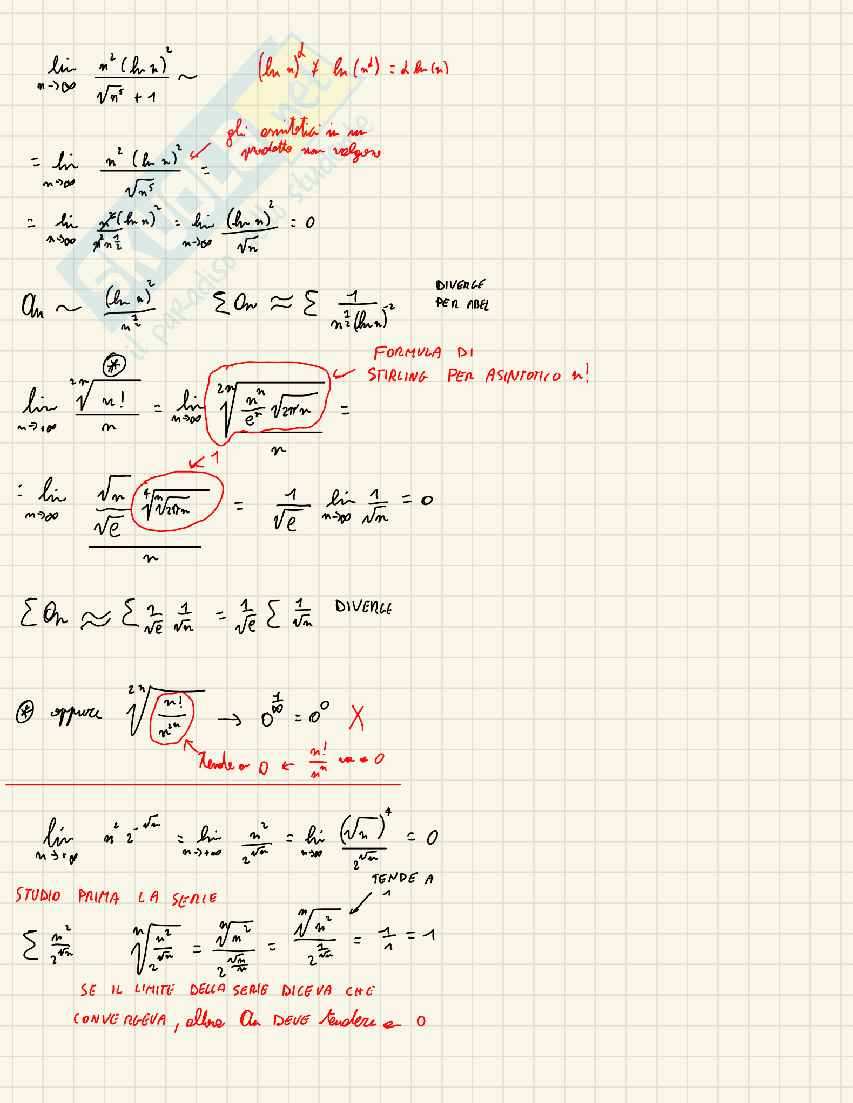 lim n→∞ n²(ln n)² / √n⁵ + 1 ~ (ln n)^α ≠ ln(n^α) = α ln(n)
gli asintotici in un
prodotto non valgono
= lim n→∞ n²(ln n)² / √n⁵ =
= lim n→∞ n²(ln n)² / n² n^½ = lim n→∞ (ln n)² / √n = 0
an ~ (ln n)² / n^½ Σ an ≈ Σ 1 / n^½ (ln n)^-2 DIVERGE
PER ABEL
FORMULA DI
STIRLING PER ASINTOTICO n!
⊛
lim n→+∞ ²ⁿ√n! / n = lim n→∞ ²ⁿ√(nⁿ/eⁿ √2πn) / n =
1
= lim n→∞ √n/√e ⁴ⁿ√2πn / n = 1/√e lim n→∞ 1/√n = 0
Σ an ≈ Σ 1/√e 1/√n = 1/√e Σ 1/√n DIVERGE
⊛ oppure ²ⁿ√(n!/n²ⁿ) → 0^(1/∞) = 0⁰ X
Tende a 0 ← n!/nⁿ va a 0
lim n→+∞ n² 2^-√n = lim n→+∞ n² / 2^√n = lim n→∞ (√n)⁴ / 2^√n = 0
TENDE A
1
STUDIO PRIMA LA SERIE
Σ n²/2^√n ⁿ√(n²/2^√n) = ⁿ√n² / 2^(√n/n) = ⁿ√n² / 2^(1/√n) = 1/1 = 1
SE IL LIMITE DELLA SERIE DICEVA CHE
CONVERGEVA, allora an DEVE tendere a 0
SKUOLA.net
il paradiso dello studente